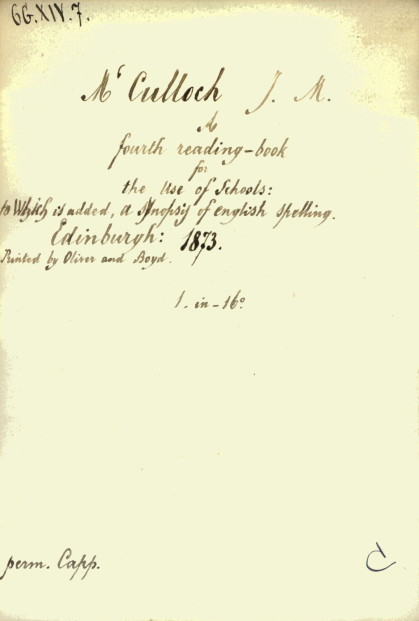 6G.XIV.7.
Mc Culloch J. M.
A
fourth reading-book
for
the Use of Schools:
to Which is added, a Synopsis of english spelling.
Edinburgh: 1873.
Printed by Oliver and Boyd.
1. in-16°
perm. Capp.
C